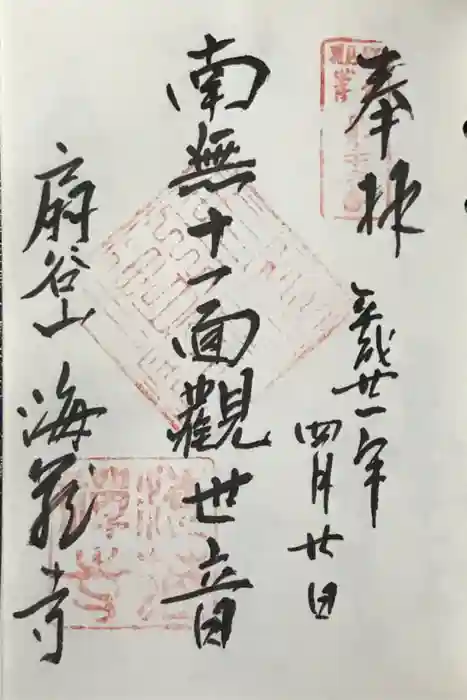 奉拝
平成廿一年
四月廿日
南無十一面觀世音
扇谷山 海蔵寺